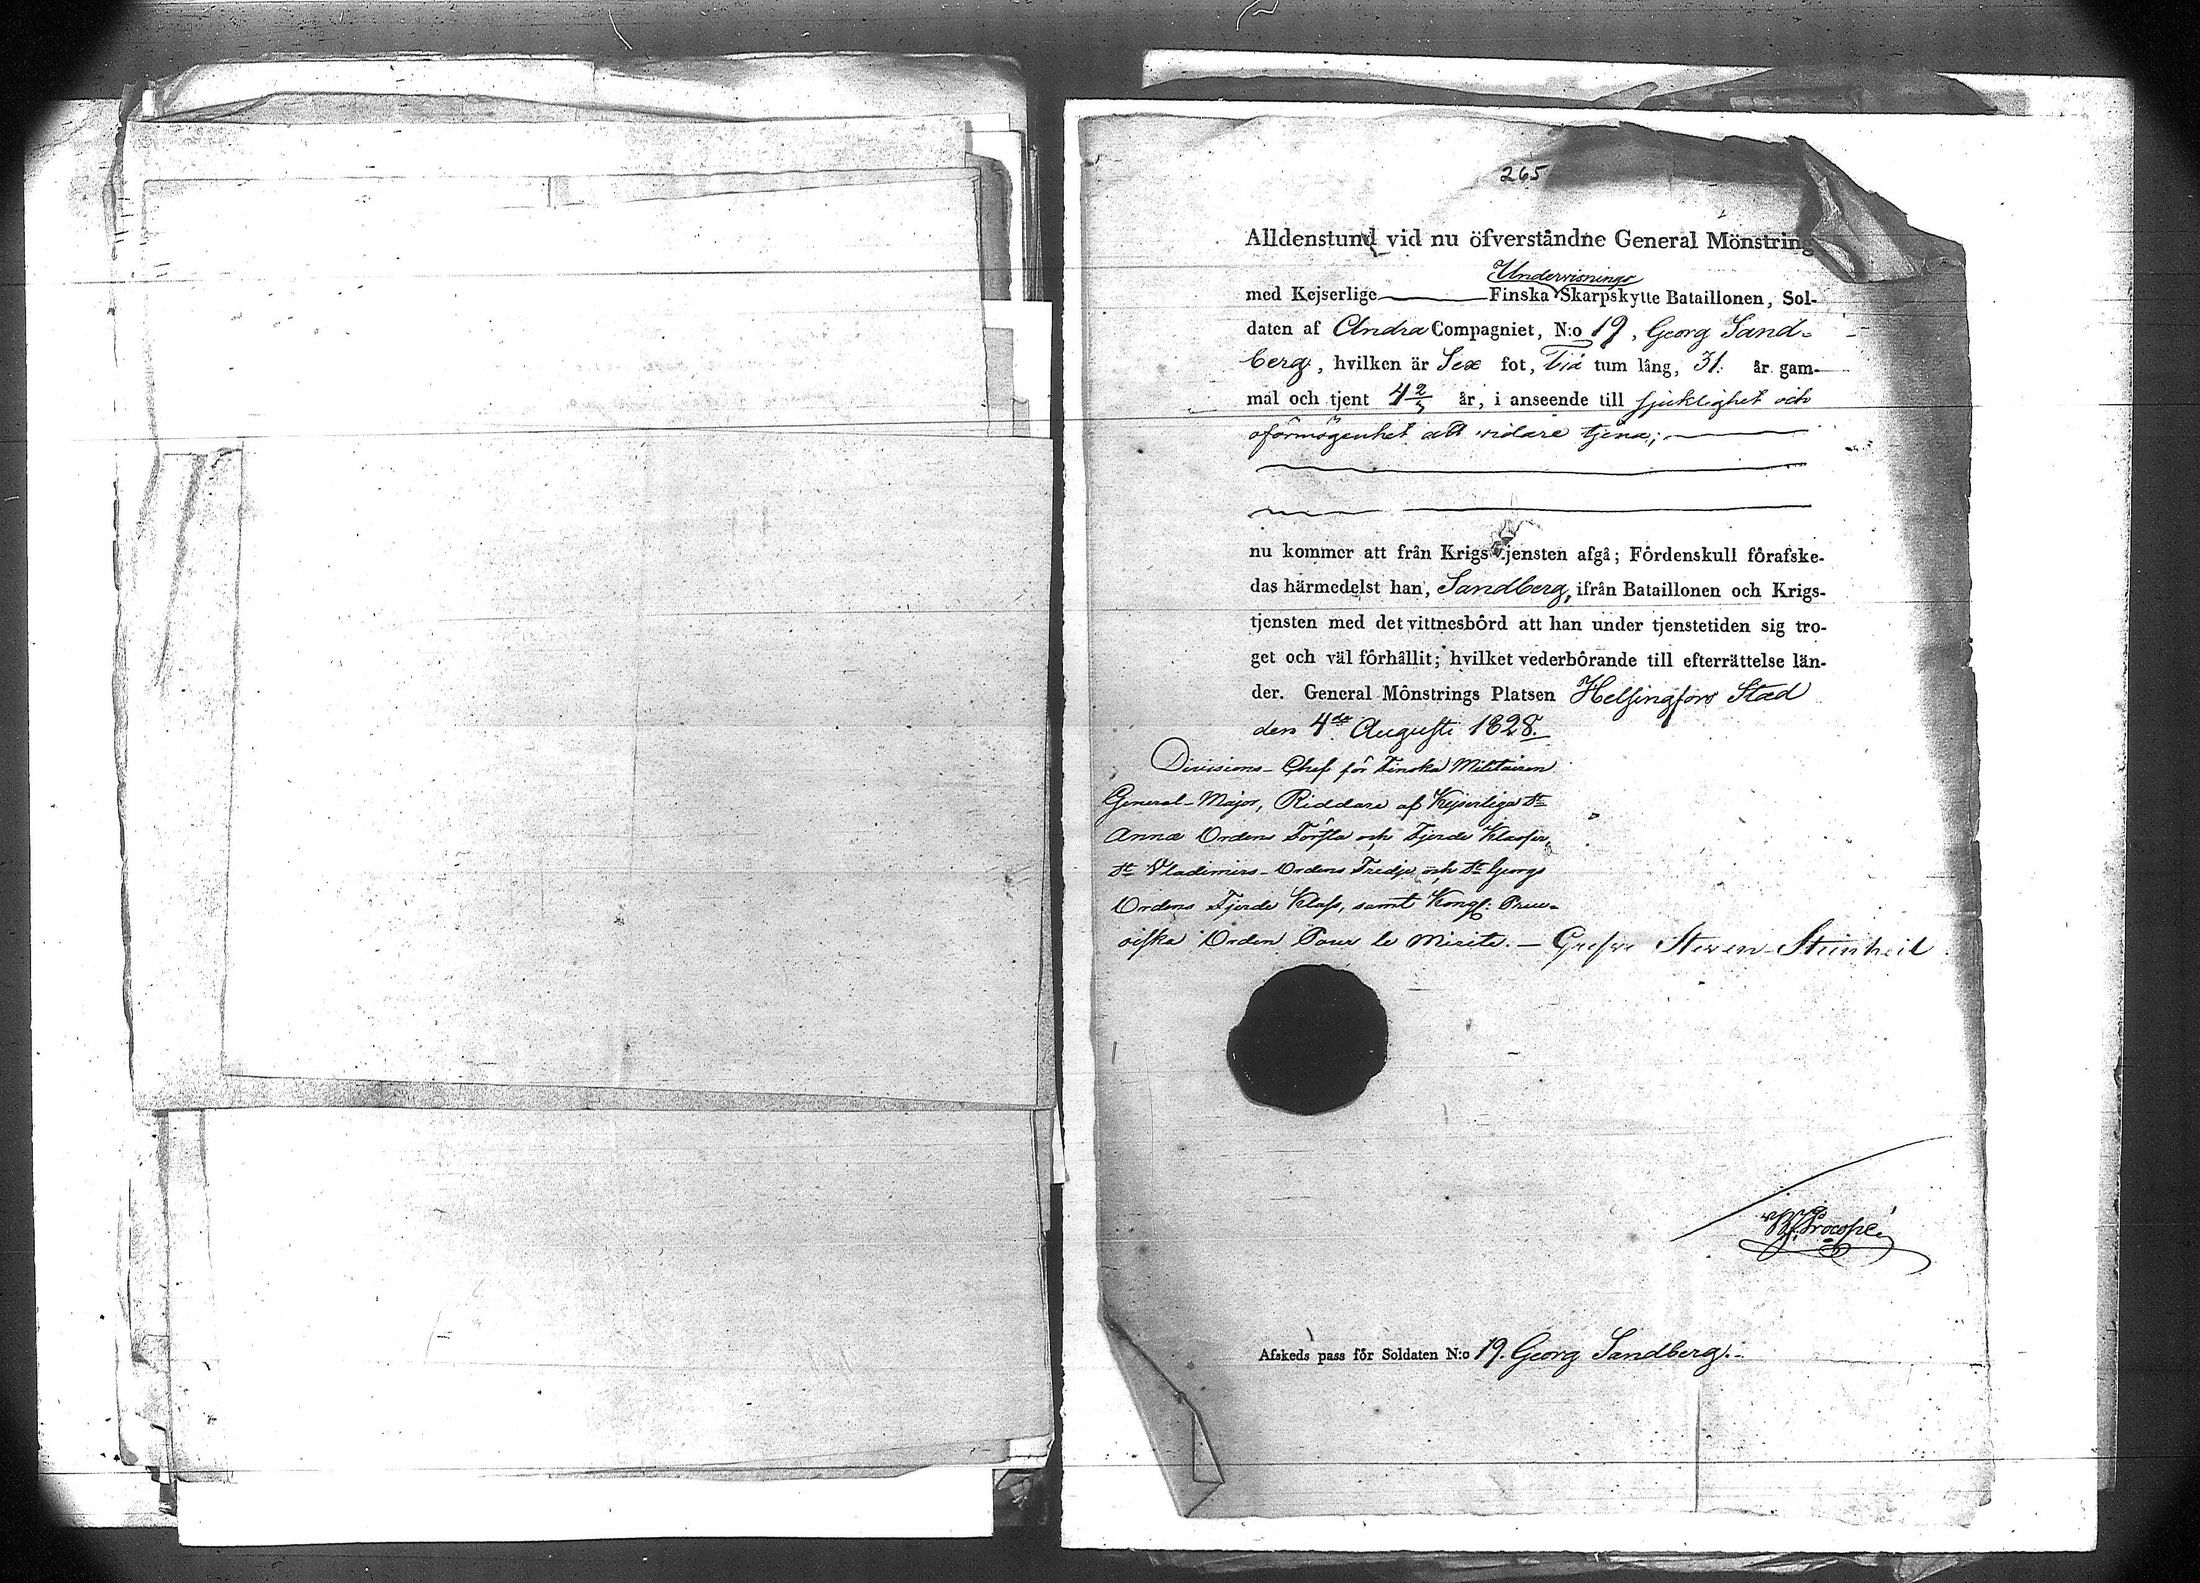 265
Alldenstund vid nu öfverståndne General Mönstring
Undervisnings
med Kejserlige Finska Skarpskytte Bataillonen, Sol-
daten af Andra Compagniet, N:o 19, Georg Sand-
berg, hvilken är Sex fot, tum lång, 31. år gam-
mal och tjent 4 2/3 år, i anseende till sjuklighet och
oförmögenhet att vidare tjena;
nu kommer att från Krigstjensten afgå; Fördenskull förafske-
das härmedelst han, Sandberg, ifrån Bataillonen och Krigs-
tjensten med det vittnesbörd att han under tjenstetiden sig tro-
get och väl förhållit; hvilket vederbörande till efterrättelse län-
der. General Mönstrings Platsen Helsingfors Stad
den 4de Augusti 1828.
Divisions-Chef för Finska Militairen
General-Major, Riddare af Kejserliga St
Annæ Ordens Första och Fjerde Klasser,
St Vladimirs-Ordens Tredje och St Georgs
Ordens Fjerde Klass, samt Kongl: Preu-
siska Orden Pour le Merite. — Grefve Steven-Steinheil
Procopé
Afskeds pass för Soldaten N:o 19. Georg Sandberg.